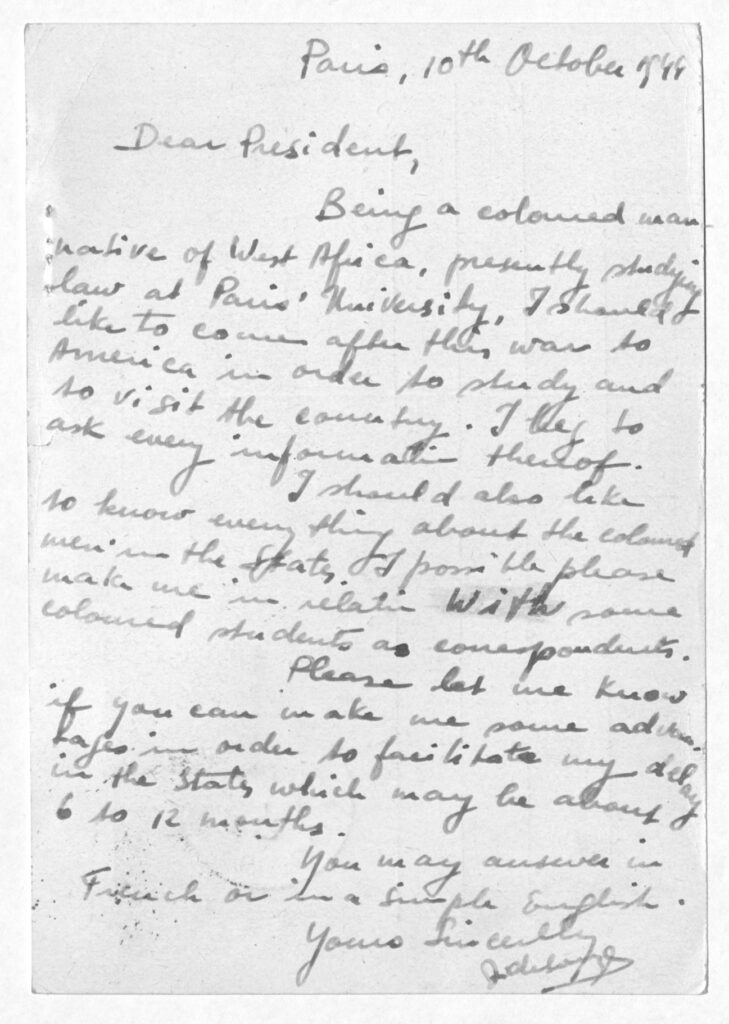 Paris, 10th October 1944
Dear President,
Being a coloured man
native of West Africa, presently studying
law at Paris' University, I should
like to come after this war to
America in order to study and
to visit the country. I beg to
ask every information thereof.
I should also like
to know everything about the coloured
men in the States. I possible please
make me in relation with some
coloured students as correspondents.
Please let me know
if you can make me some advan-
tages in order to facilitate my delay
in the States which may be about
6 to 12 months.
You may answer in
French or in a simple English.
Yours Sincerely